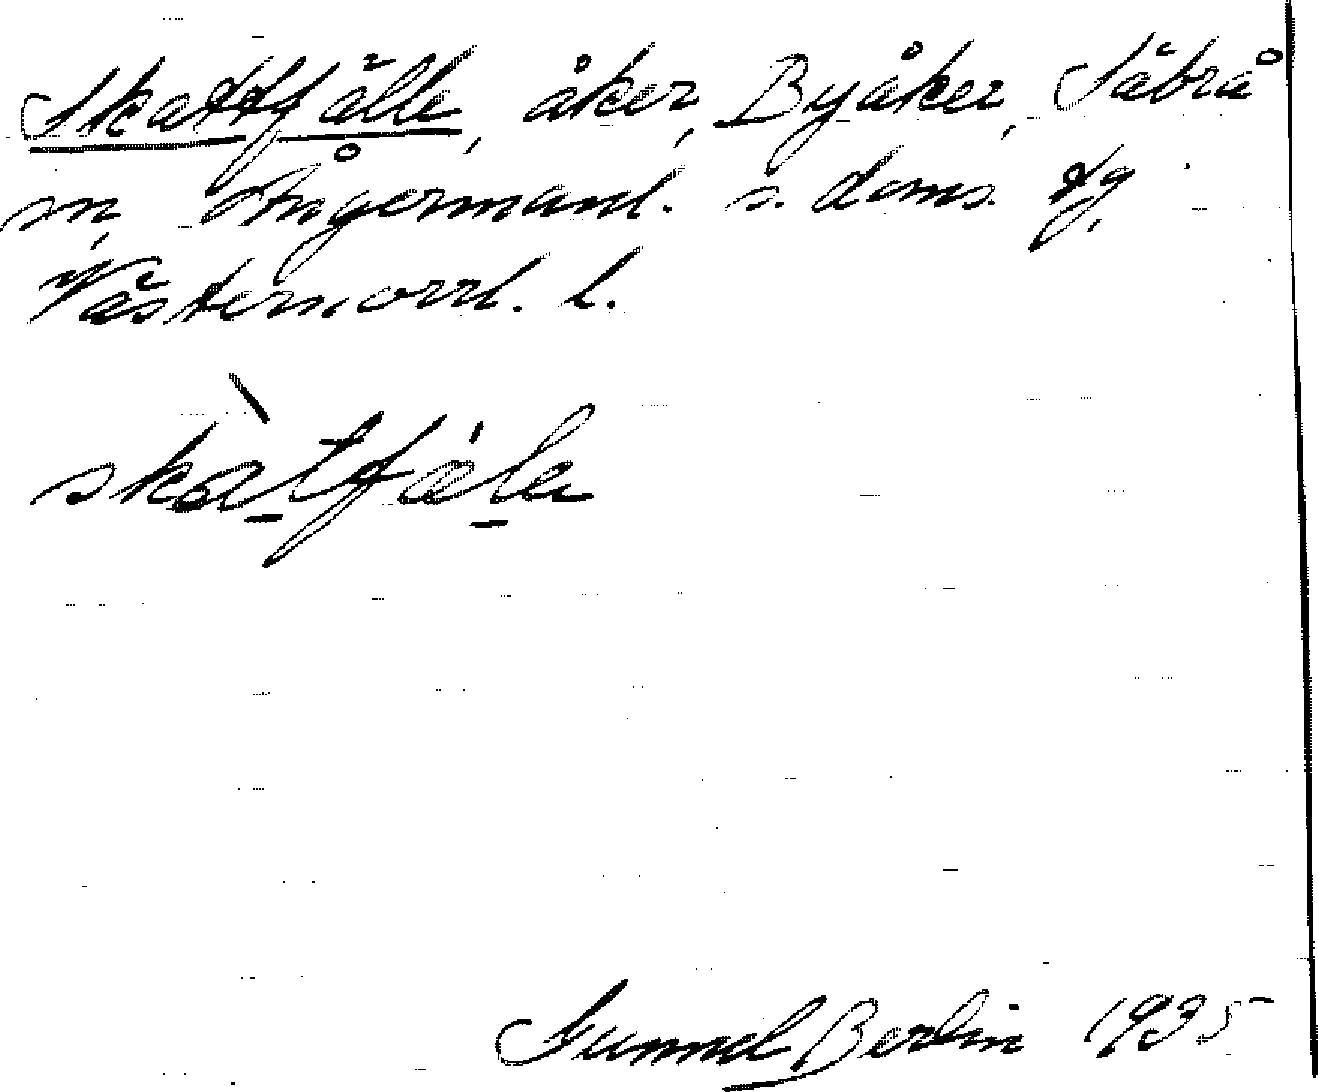 Skattfjälle, åker, Byåker, Säbrå
sn, Ångermanl. s. doms. tg,
Västernorrl. l.
skàtfæ̀le
Gunnel Berlin 1935